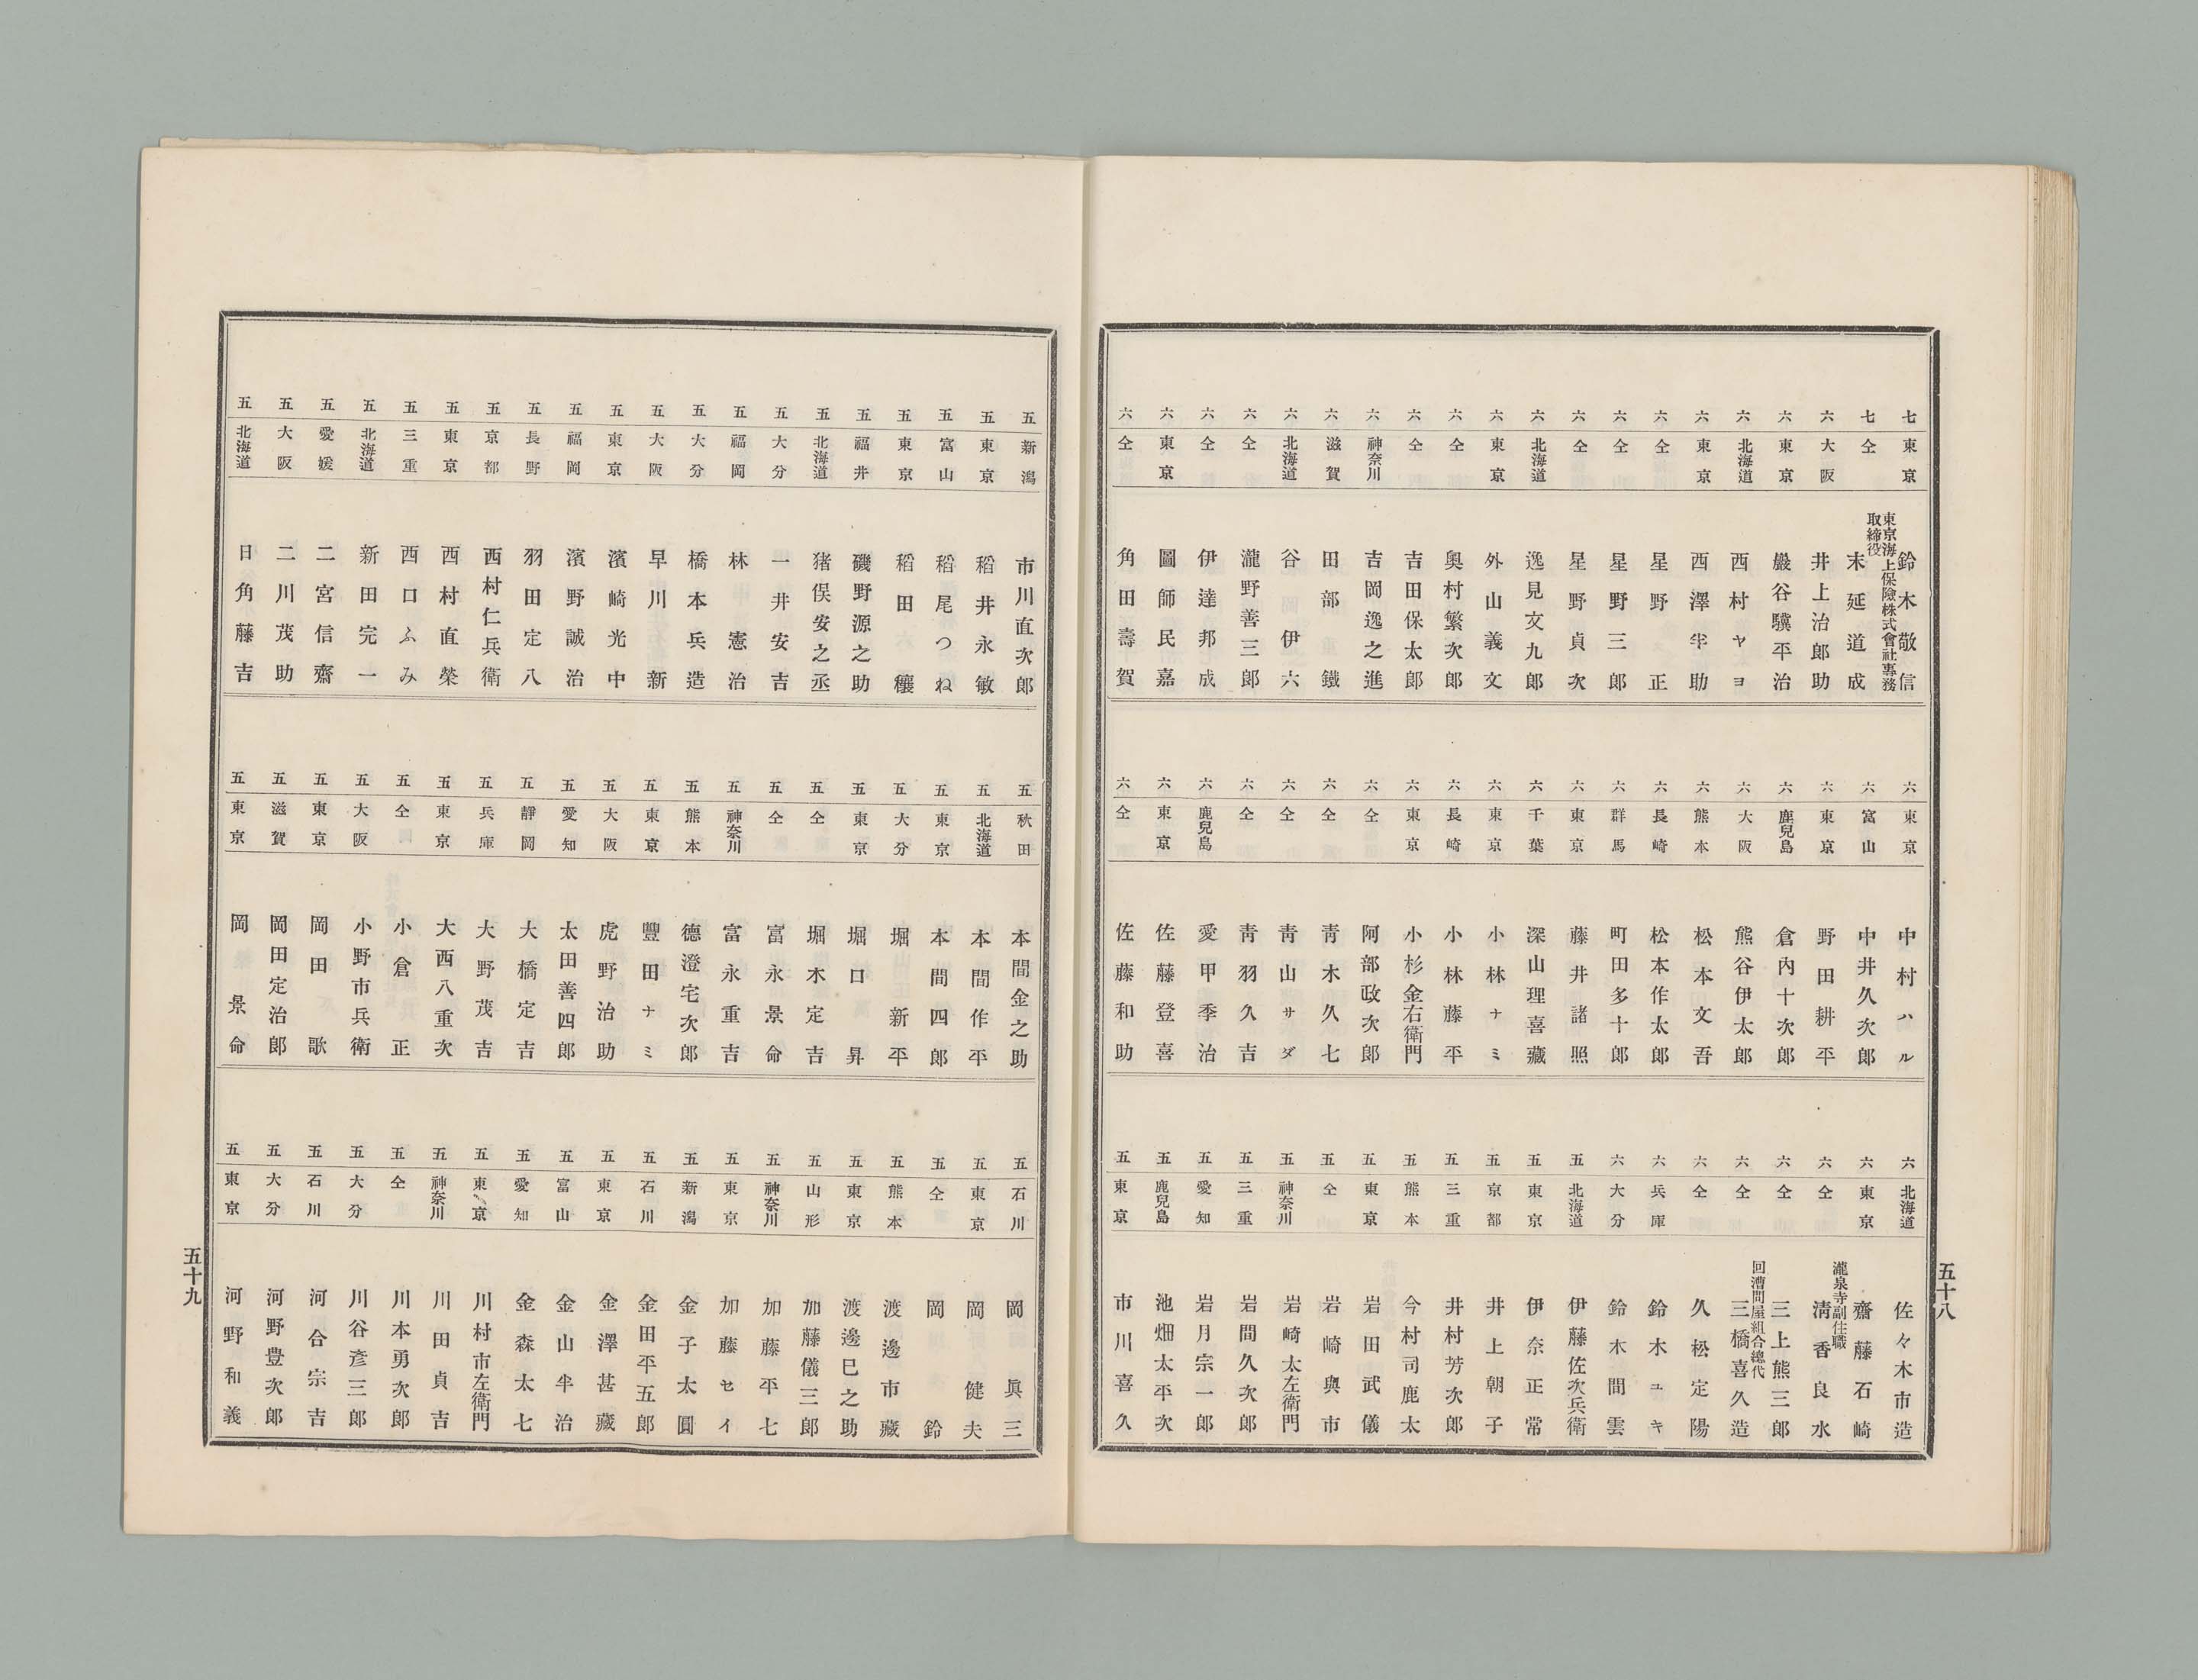 七 東京 鈴木敬信
七 仝 東京海上保險株式會社專務取締役 末延道成
六 大阪 井上治郎助
六 東京 巖谷驥平治
六 北海道 西村ヤヨ
六 東京 西澤半助
六 仝 星野正
六 仝 星野三郎
六 仝 星野貞次
六 北海道 逸見文九郎
六 東京 外山義文
六 仝 奧村繁次郎
六 仝 吉田保太郎
六 神奈川 吉岡逸之進
六 滋賀 田部鐵
六 北海道 谷伊六
六 仝 瀧野善三郎
六 仝 伊達邦成
六 東京 圖師民嘉
六 仝 角田壽賀
六 東京 中村ハル
六 富山 中井久次郎
六 東京 野田耕平
六 鹿兒島 倉內十次郎
六 大阪 熊谷伊太郎
六 熊本 松本文吾
六 長崎 松本作太郎
六 群馬 町田多十郎
六 東京 藤井諸照
六 千葉 深山理喜藏
六 東京 小林ナミ
六 長崎 小林藤平
六 東京 小杉金右衛門
六 仝 阿部政次郎
六 仝 青木久七
六 仝 青山サダ
六 仝 青羽久吉
六 鹿兒島 愛甲季治
六 東京 佐藤登喜
六 仝 佐藤和助
六 北海道 佐々木市造
六 東京 齋藤石崎
六 仝 瀧泉寺副住職 清香良水
六 仝 三上熊三郎
六 仝 回漕問屋組合總代 三橋喜久造
六 仝 久松定陽
六 兵庫 鈴木ユキ
六 大分 鈴木間雲
五 北海道 伊藤佐次兵衛
五 東京 伊奈正常
五 京都 井上朝子
五 三重 井村芳次郎
五 熊本 今村司鹿太
五 東京 岩田武儀
五 仝 岩崎與市
五 神奈川 岩崎太左衛門
五 三重 岩間久次郎
五 愛知 岩月宗一郎
五 鹿兒島 池畑太平次
五 東京 市川喜久
五十八
五 新潟 市川直次郎
五 東京 稻井永敏
五 富山 稻尾つね
五 東京 稻田穰
五 福井 磯野源之助
五 北海道 猪俣安之丞
五 大分 一井安吉
五 福岡 林憲治
五 大分 橋本兵造
五 大阪 早川新
五 東京 濱崎光中
五 福岡 濱野誠治
五 長野 羽田定八
五 京都 西村仁兵衛
五 東京 西村直榮
五 三重 西口ふみ
五 北海道 新田完一
五 愛媛 二宮信齋
五 大阪 二川茂助
五 北海道 日角藤吉
五 秋田 本間金之助
五 北海道 本間作平
五 東京 本間四郎
五 大分 堀新平
五 東京 堀口昇
五 仝 堀木定吉
五 仝 富永景命
五 神奈川 富永重吉
五 熊本 德澄宅次郎
五 東京 豐田ナミ
五 大阪 虎野治助
五 愛知 太田善四郎
五 靜岡 大橋定吉
五 兵庫 大野茂吉
五 東京 大西八重次
五 仝 小倉正
五 大阪 小野市兵衛
五 東京 岡田歌
五 滋賀 岡田定治郎
五 東京 岡景命
五 石川 岡眞三
五 東京 岡健夫
五 仝 岡鈴
五 熊本 渡邊市藏
五 東京 渡邊巳之助
五 山形 加藤儀三郎
五 神奈川 加藤平七
五 東京 加藤セイ
五 新潟 金子太圓
五 石川 金田平五郎
五 東京 金澤甚藏
五 富山 金山半治
五 愛知 金森太七
五 東京 川村市左衛門
五 神奈川 川田貞吉
五 仝 川本勇次郎
五 大分 川谷彥三郎
五 石川 河合宗吉
五 大分 河野豊次郎
五 東京 河野和義
五十九